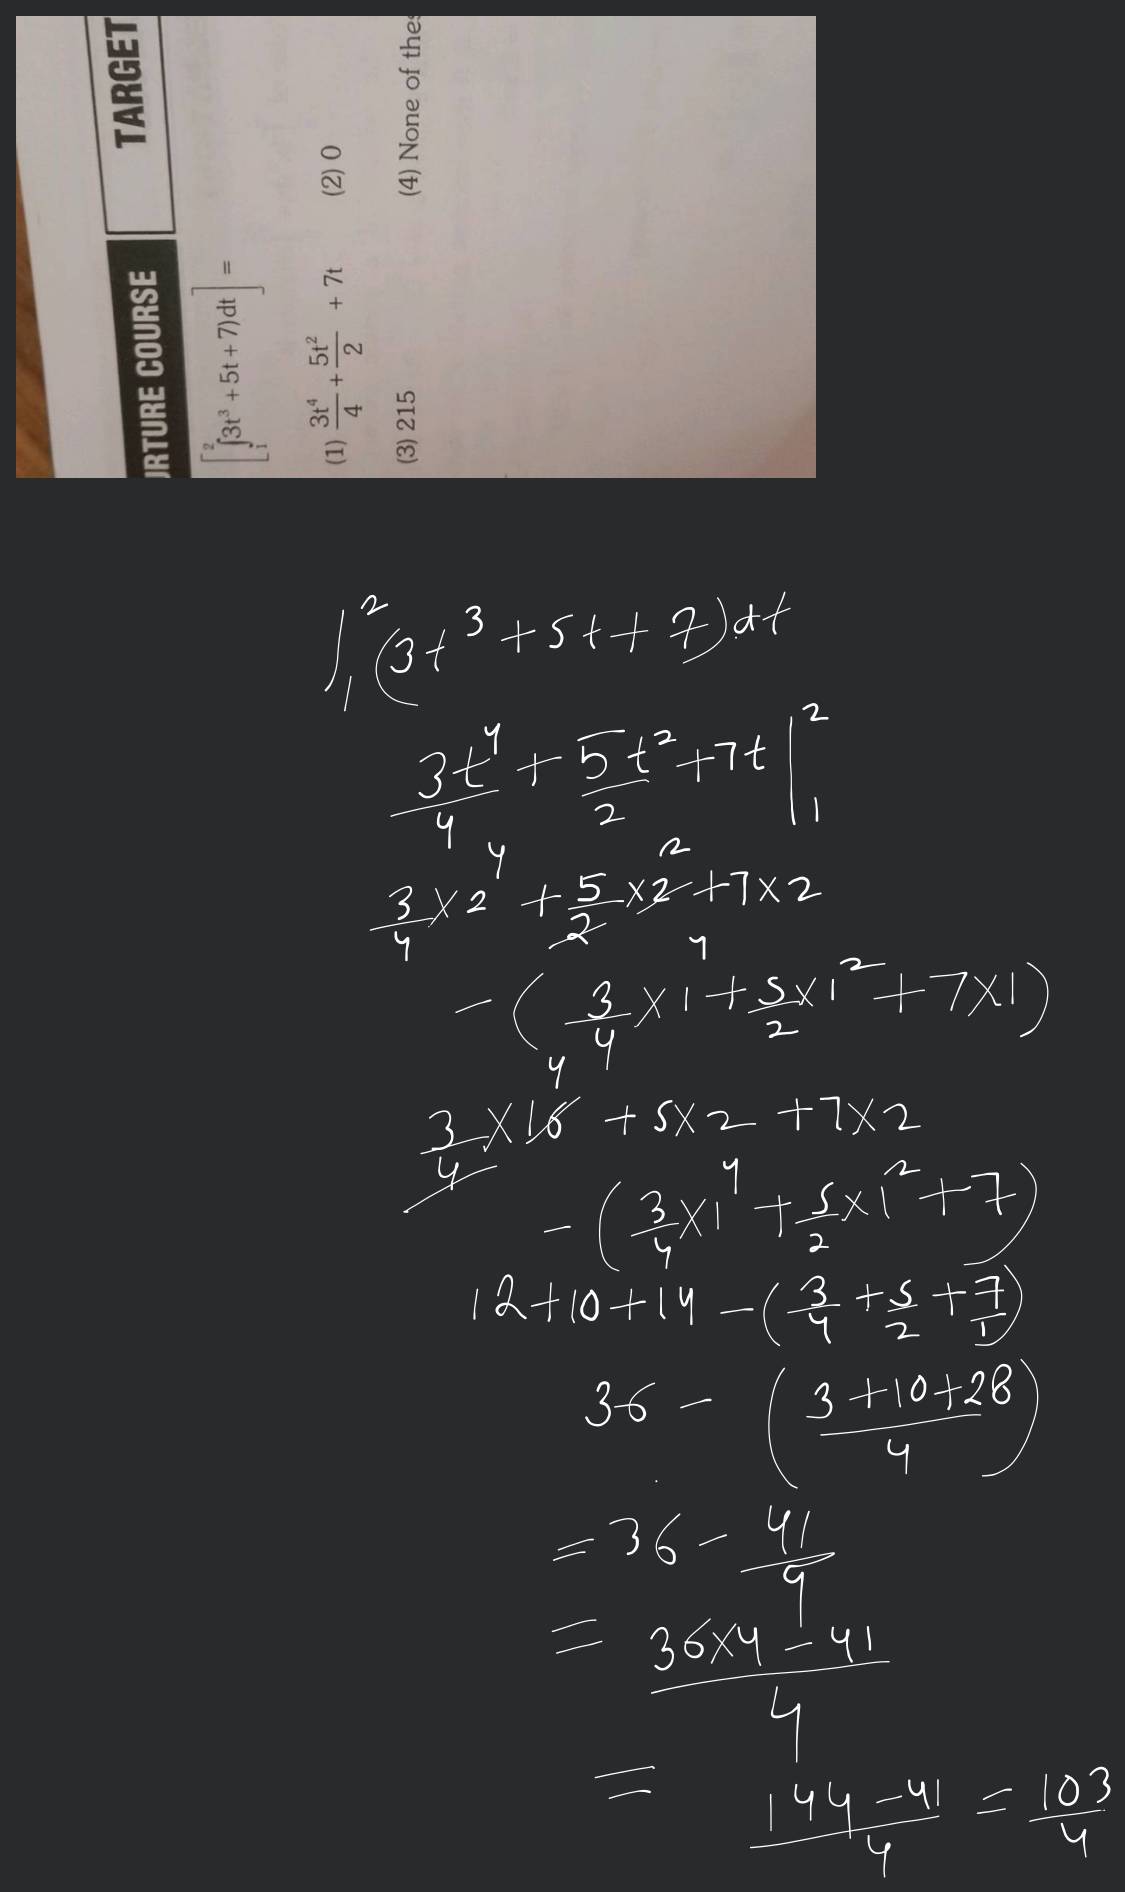 URTURE COURSE TARGET
[∫₁² 3t³ + 5t + 7)dt] =
(1) 3t⁴/4 + 5t²/2 + 7t (2) 0
(3) 215 (4) None of thes
∫₁² (3t³ + 5t + 7)dt
3t⁴/4 + 5t²/2 + 7t |₁²
3/4 × 2⁴ + 5/2 × 2² + 7 × 2
- (3/4 × 1⁴ + 5/2 × 1² + 7 × 1)
3/4 × 16 + 5 × 2 + 7 × 2
- (3/4 × 1⁴ + 5/2 × 1² + 7)
12 + 10 + 14 - (3/4 + 5/2 + 7/1)
36 - (3 + 10 + 28 / 4)
= 36 - 41/4
= 36 × 4 - 41 / 4
= 144 - 41 / 4 = 103/4